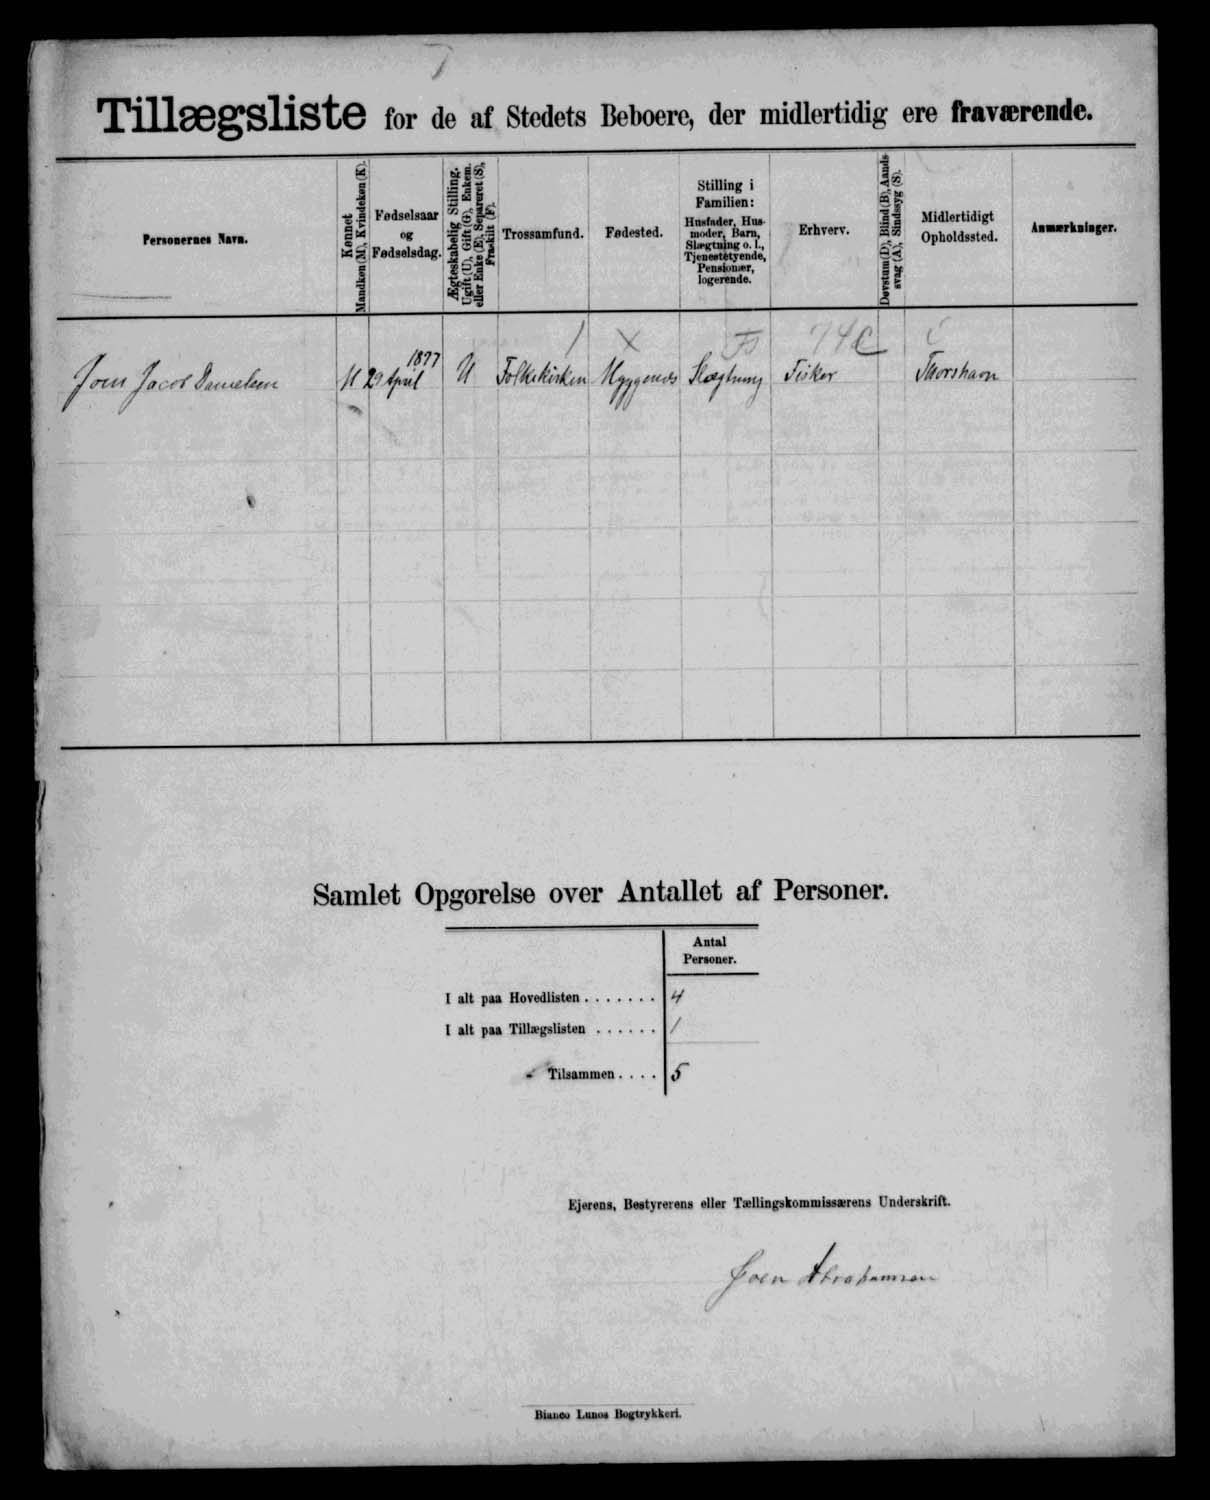 Tillægsliste for de af Stedets Beboere, der midlertidig ere fraværende.
Personernes Navn.
Kønnet
Mandkøn (M), Kvindekøn (K).
Fødselsaar
og
Fødselsdag.
Ægteskabelig Stilling.
Ugift (U), Gift (G), Enkem.
eller Enke (E), Separeret (S),
Fraskilt (F).
Trossamfund.
Fødested.
Stilling i
Familien:
Husfader, Hus-
moder, Barn,
Slægtning o. l.,
Tjenestetyende,
Pensionær,
logerende.
Erhverv.
Døvstum (D), Blind (B), Aands-
svag (A), Sindssyg (S).
Midlertidigt
Opholdssted.
Anmærkninger.
1 X FS 74C
Joen Jacob Danielsen M 1877 29 April U Folkekirken Myggenæs Slægtning Fisker Thorshavn
Samlet Opgørelse over Antallet af Personer.
Antal
Personer.
I alt paa Hovedlisten . . . . . . . 4
I alt paa Tillægslisten . . . . . . 1
Tilsammen . . . . 5
Ejerens, Bestyrerens eller Tællingskommissærens Underskrift.
Joen Abrahamsen
Bianco Lunos Bogtrykkeri.